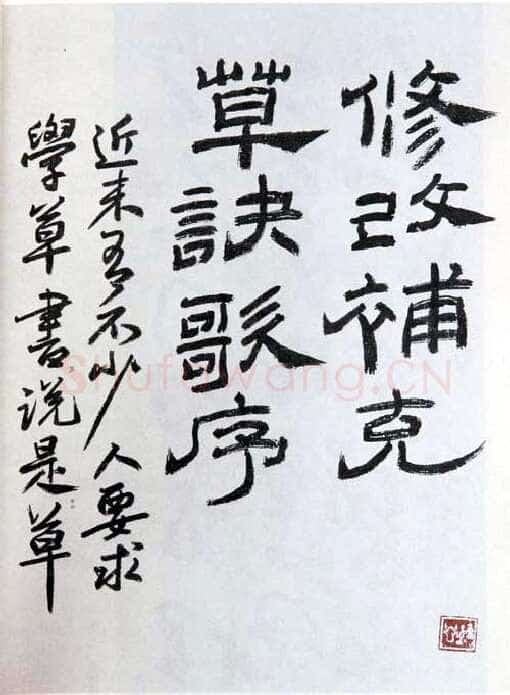 修改補充
草訣歌序
近来有不少人要求
學草書说是草
Shufawang.CN